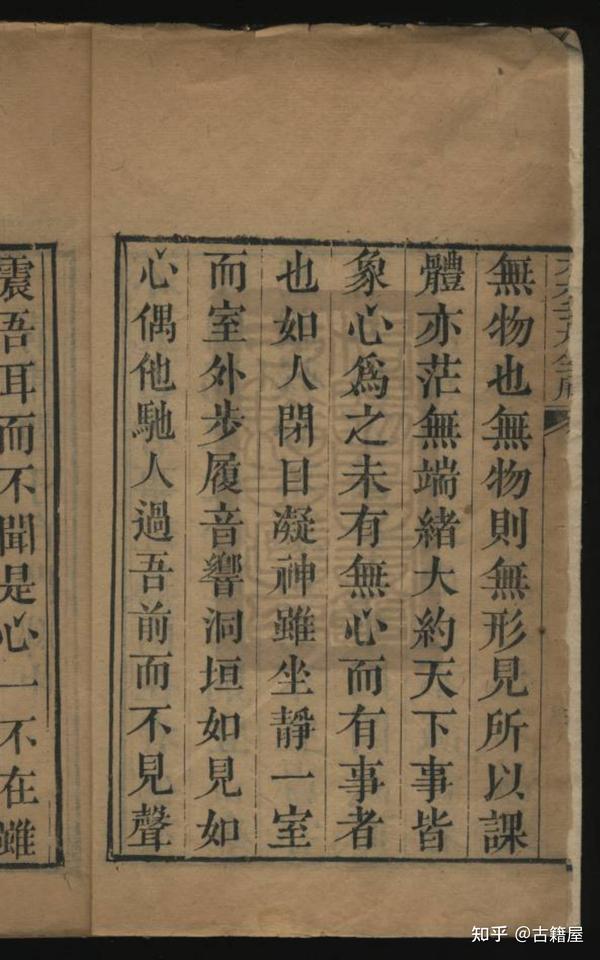 無物也無物則無形見所以課
體亦茫無端緒大約天下事皆
象心爲之未有無心而有事者
也如人閉目凝神雖坐靜一室
而室外步履音響洞垣如見如
心偶他馳人過吾前而不見聲
震吾耳而不聞是心一不在雖
知乎 @古籍屋